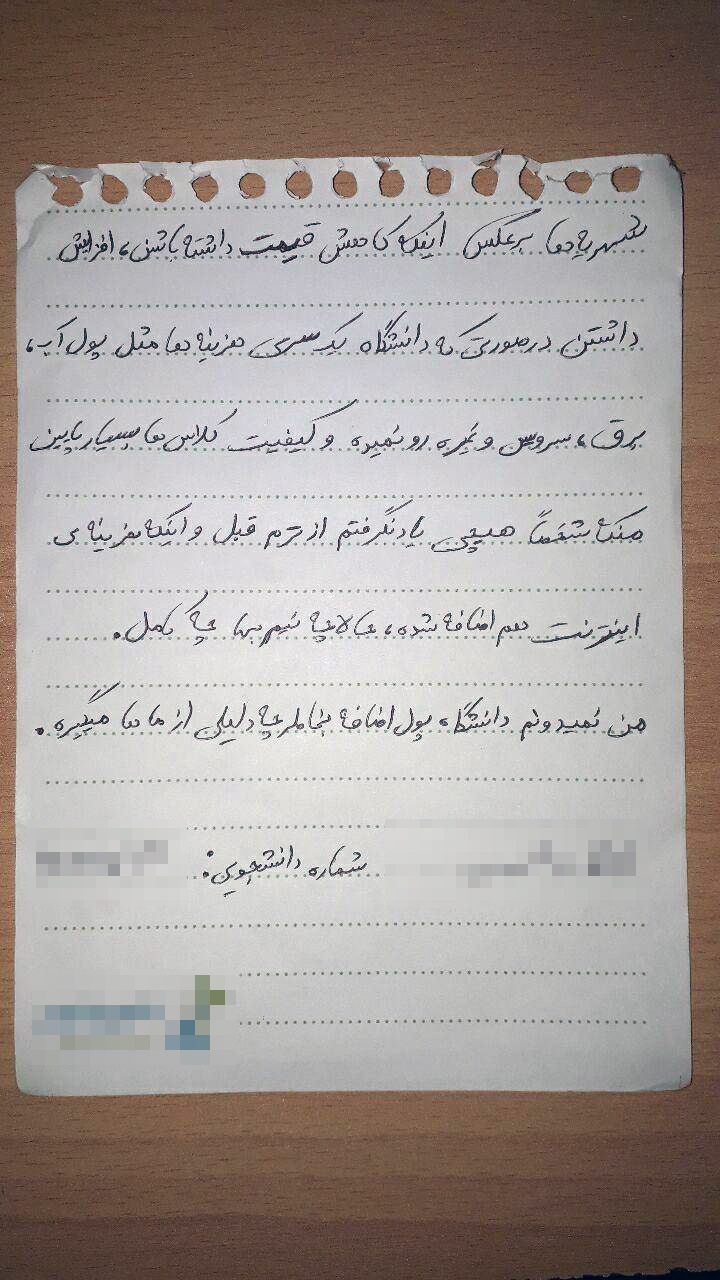 شهریه ها برعکس اینکه کاهش قیمت داشته باشن، افزایش
داشتن درصورتی که دانشگاه یک سری هزینه ها مثل پول آب،
برق، سرویس و غیره رو نمیده و کیفیت کلاس ها بسیار پایین
منکه شخصاً هیچی یاد نگرفتم از ترم قبل و اینکه هزینه ی
اینترنت هم اضافه شده، حالا چه نیم بها چه کامل.
من نمیدونم دانشگاه پول اضافه بخاطر چه دلیلی از ماها میگیره.
شماره دانشجویی: